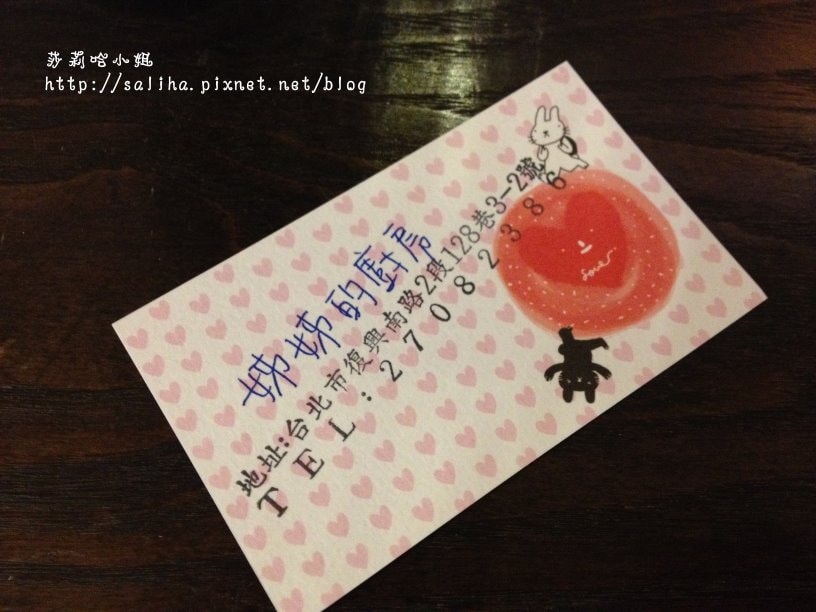 莎莉哈小姐
http://saliha.pixnet.net/blog
姊姊的廚房
地址:台北市復興南路2段128巷3-2號
TEL:27082386
love